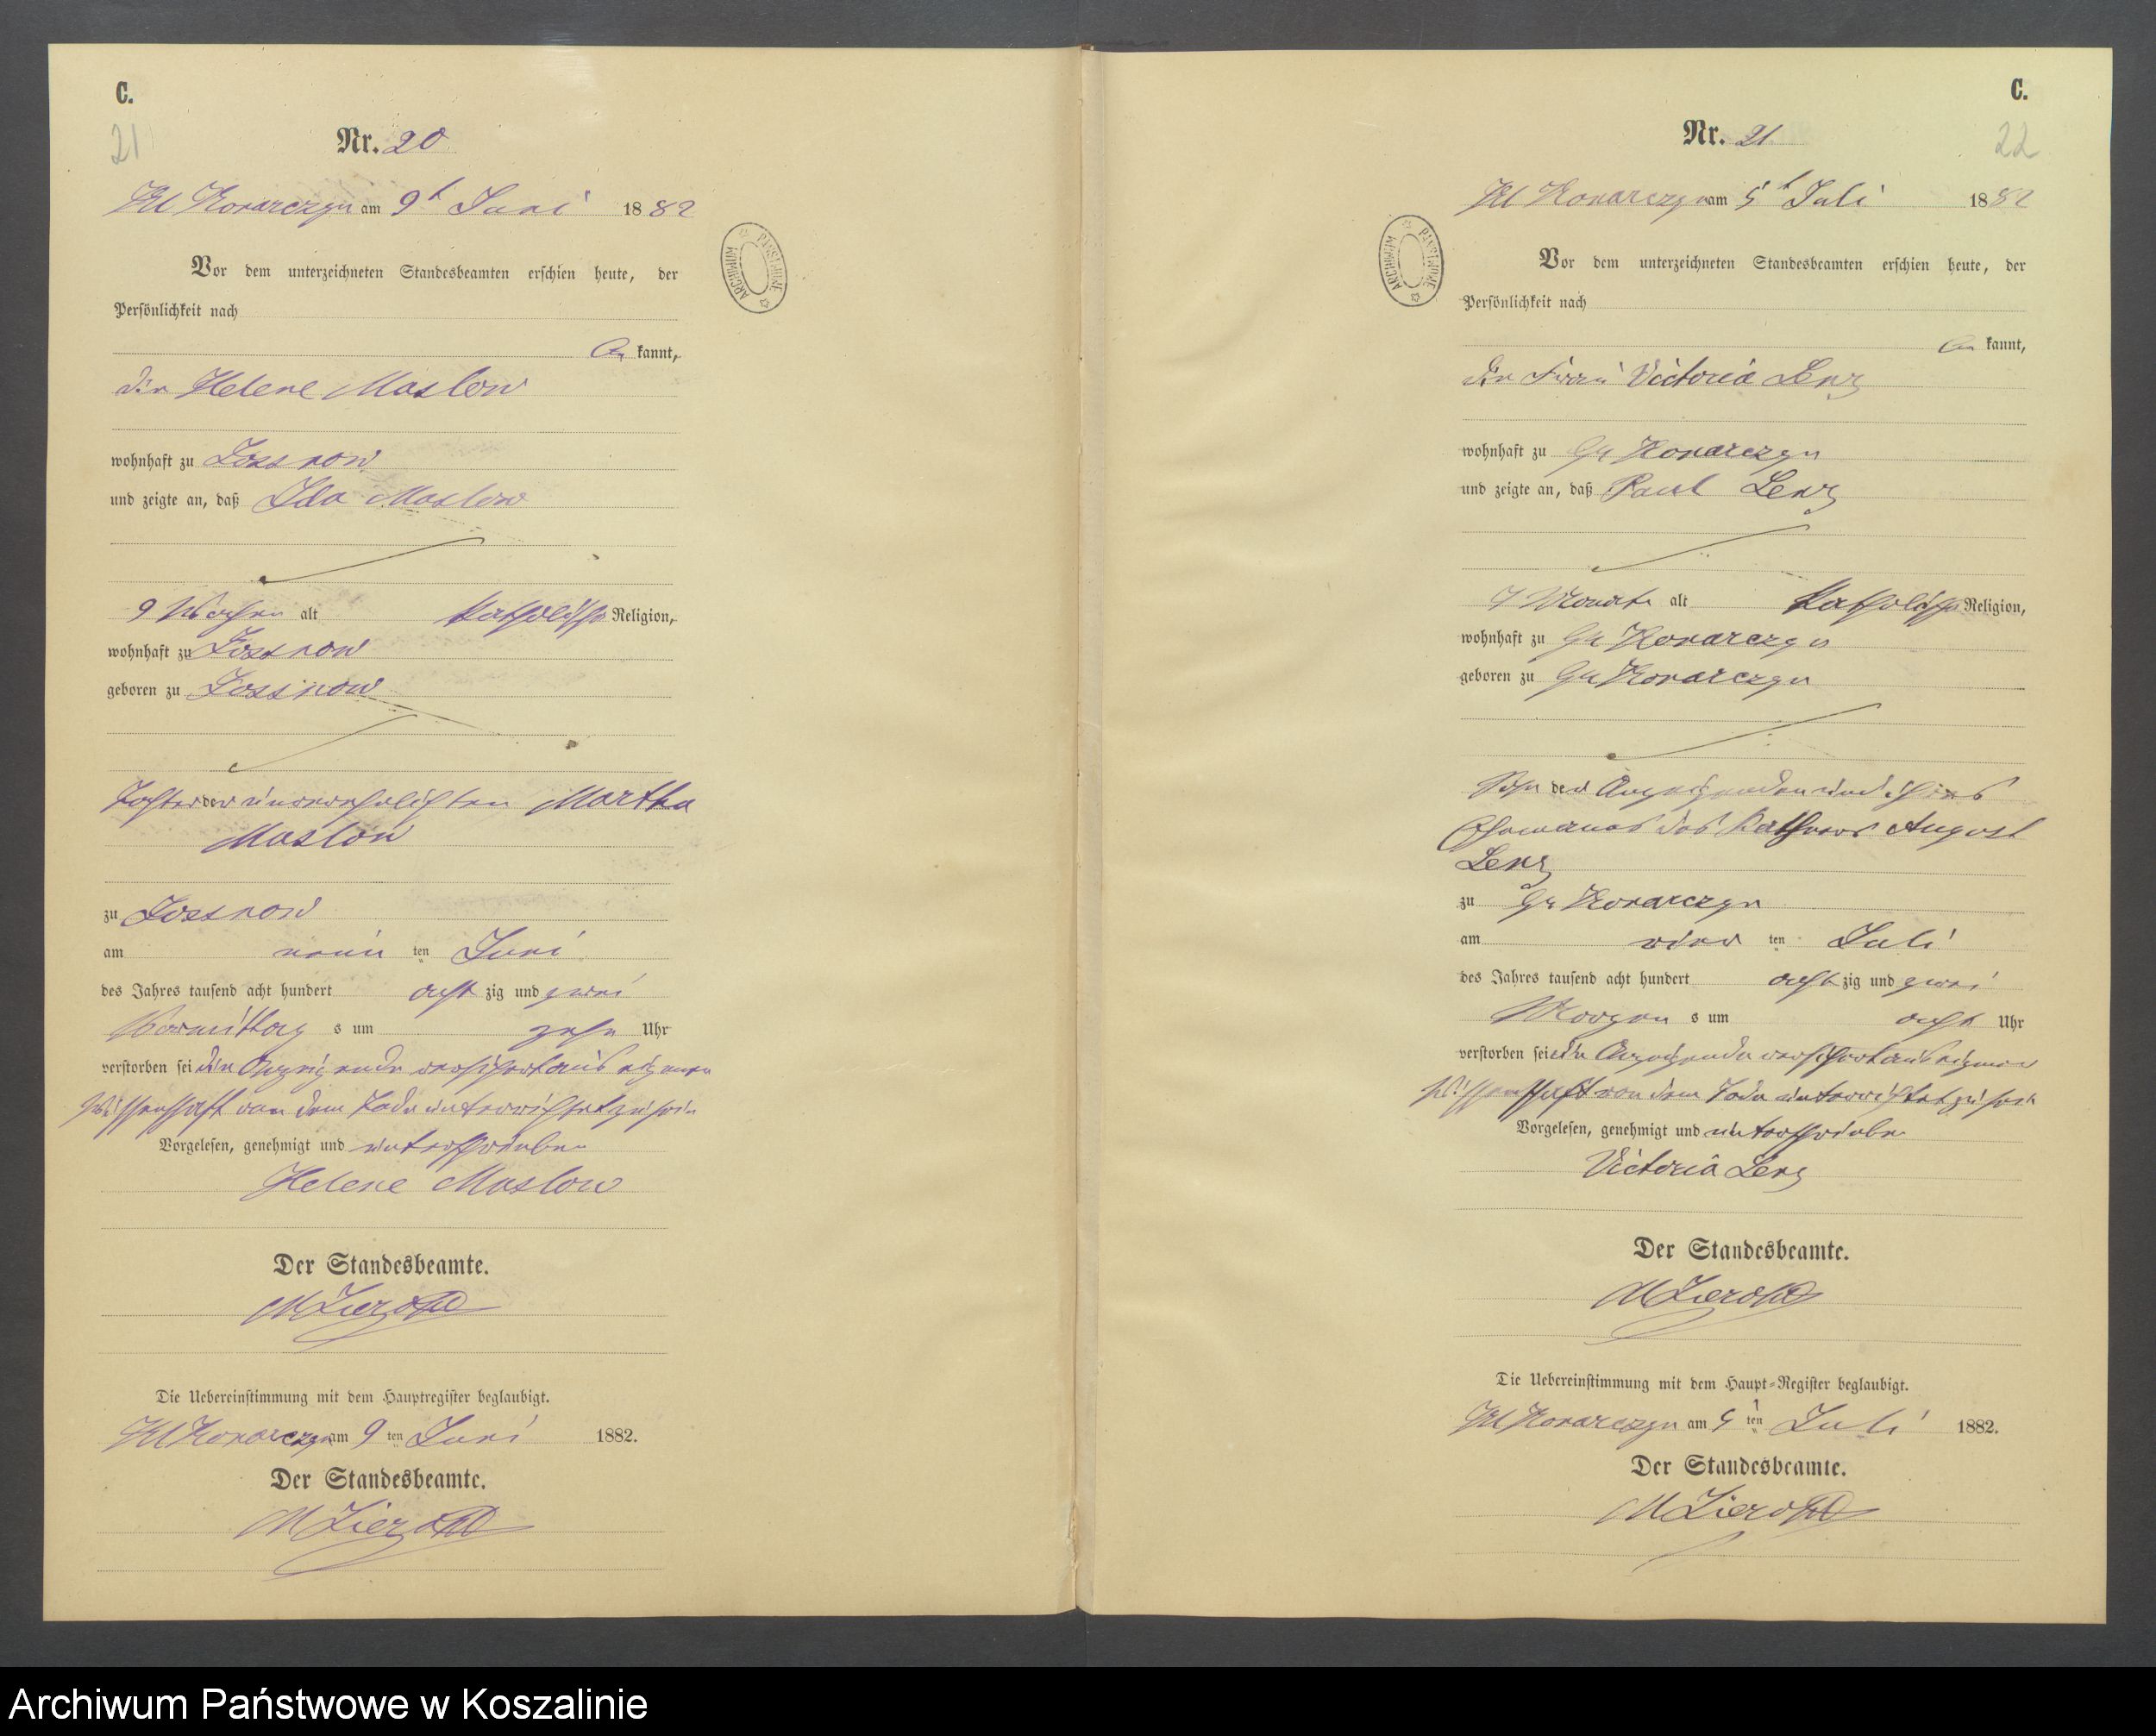 C.
21
Nr. 20
Kl Konarczyn am 9t Juni 1882
Vor dem unterzeichneten Standesbeamten erschien heute, der
Persönlichkeit nach
be kannt,
die Helene Maslow
wohnhaft zu Sossnow
und zeigte an, daß Ida Maslow
9 Wochen alt katholischer Religion,
wohnhaft zu Sossnow
geboren zu Sossnow
Tochter der unverehelichten Martha
Maslow
zu Sossnow
am neun ten Juni
des Jahres tausend acht hundert acht zig und zwei
Vormittag s um zehn Uhr
verstorben sei die Anzeigende versichert aus eigener
Wissenschaft von dem Tode unterrichtet zu sein
Vorgelesen, genehmigt und unterschrieben
Helene Maslow
Der Standesbeamte.
Die Uebereinstimmung mit dem Hauptregister beglaubigt.
Kl Konarczyn am 9 ten Juni 1882.
Der Standesbeamte.
ARCHIWUM PAŃSTWOWE
C.
22
Nr. 21.
Kl Konarczyn am 5t Juli 1882
Vor dem unterzeichneten Standesbeamten erschien heute, der
Persönlichkeit nach
be kannt,
die Frau Victoria Lenz
wohnhaft zu Gr Konarczyn
und zeigte an, daß Paul Lenz
Monate alt katholischer Religion,
wohnhaft zu Gr Konarczyn
geboren zu Gr Konarczyn
Sohn der Anzeigenden und ihres
Ehemannes des Käthners August
Lenz
zu Gr Konarczyn
am vier ten Juli
des Jahres tausend acht hundert acht zig und zwei
Morgen s um acht Uhr
verstorben sei die Anzeigende versichert aus eigener
Wissenschaft von dem Tode unterrichtet zu sein
Vorgelesen, genehmigt und unterschrieben
Victoria Lenz
Der Standesbeamte.
Die Uebereinstimmung mit dem Haupt-Register beglaubigt.
Kl Konarczyn am 5 ten Juli 1882.
Der Standesbeamte.
ARCHIWUM PAŃSTWOWE
Archiwum Państwowe w Koszalinie